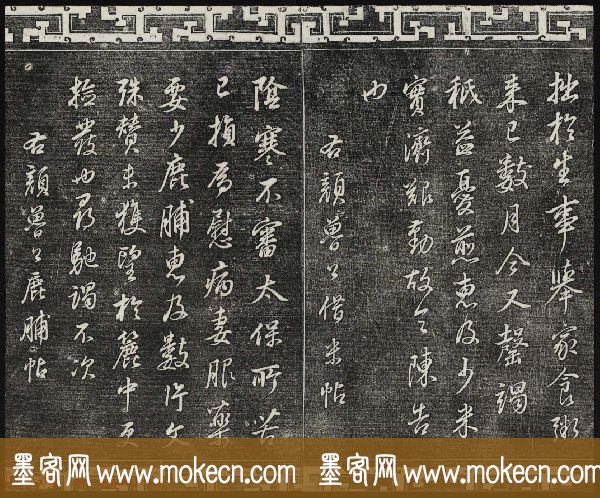 拙於生事舉家食粥
来已數月今又罄竭
秖益憂煎惠及少米
實濟艱勤故令陳告
也
右顏魯公借米帖
陰寒不審太保所苦
已損為慰病妻服藥
要少鹿脯惠及數片文
殊贊未獲望於麓中更
撿發也尋馳謁不次
右顏魯公鹿脯帖
墨客网 www.mokecn.com 墨客网 www.mokecn.com